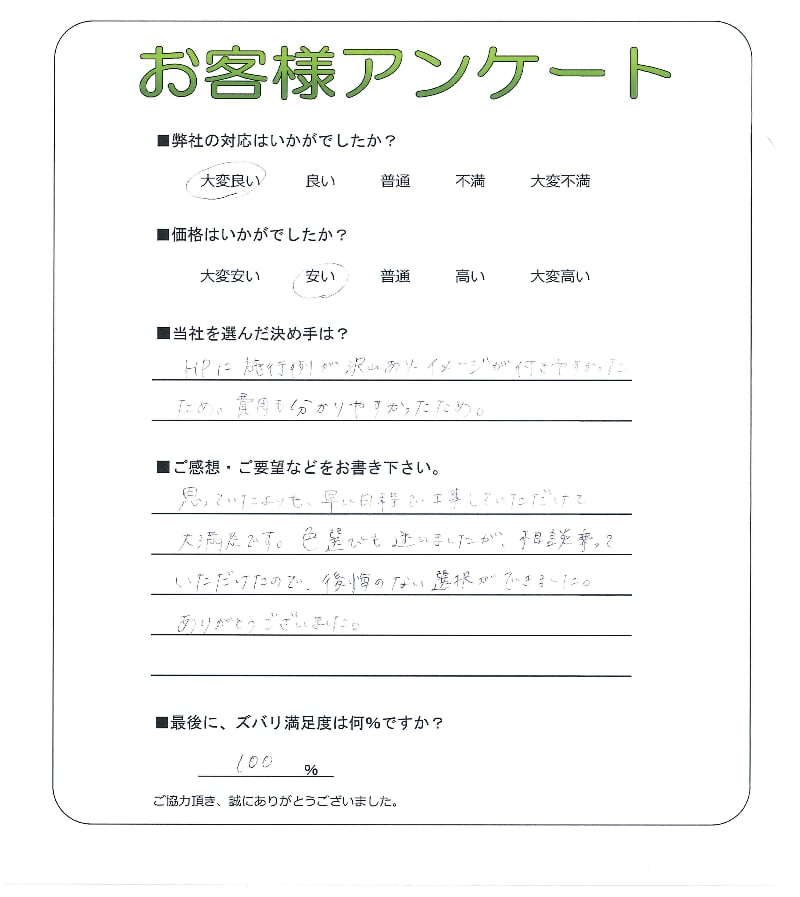 お客様アンケート
■弊社の対応はいかがでしたか？
大変良い 良い 普通 不満 大変不満
■価格はいかがでしたか？
大変安い 安い 普通 高い 大変高い
■当社を選んだ決め手は？
HPに施行例が沢山ありイメージが付きやすかった
ため。費用も分かりやすかったため。
■ご感想・ご要望などをお書き下さい。
思っていたよりも、早い日程で工事していただけて
大満足です。色選びも迷いましたが、相談乗って
いただけたので、後悔のない選択ができました。
ありがとうございました。
■最後に、ズバリ満足度は何%ですか？
100 %
ご協力頂き、誠にありがとうございました。